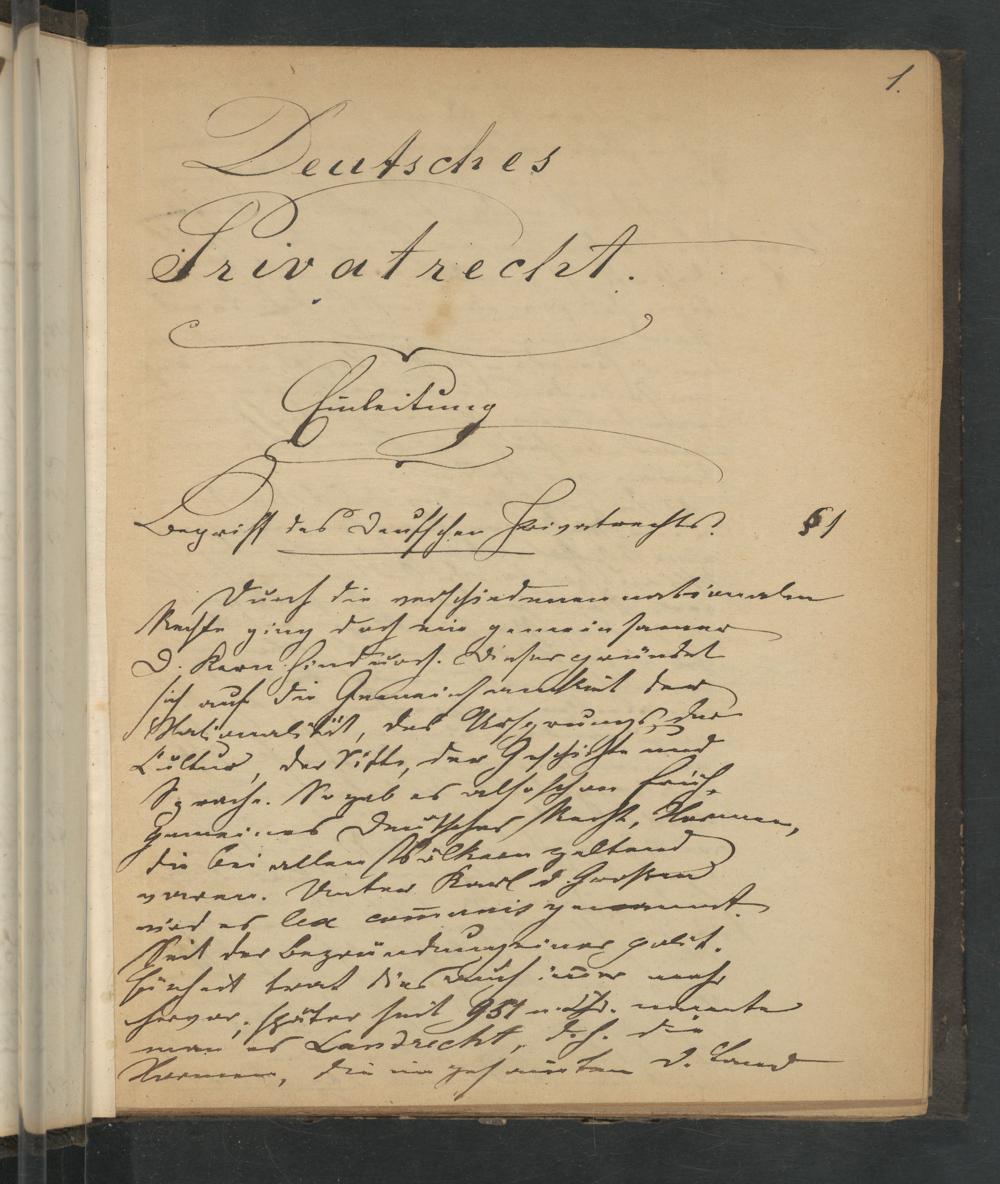 1.
Deutsches
Privatrecht.
Einleitung
Begriff des Deutschen Privatrechts.
§ 1
Durch die verschiedenen nationalen
Rechte ging doch ein gemeinsamer
D. Kern hindurch. Dieser gründet
sich auf die Gemeinsamkeit der
Nationalität, des Ursprungs, der
Cultur, der Sitte, der Geschichte und
Sprache. So gab es also schon früh
gemeines Deutsches Recht, Normen,
die bei allen Völkern geltend
waren. Unter Karl d. Großen
wird es lex com̅unis genannt.
Seit der Begründung einer polit.
Einheit trat dies auch im̅er mehr
hervor; später seit 951 n. Chr. nannte
man es Landrecht, d. h. die
Normen, die im gesamten D. Land